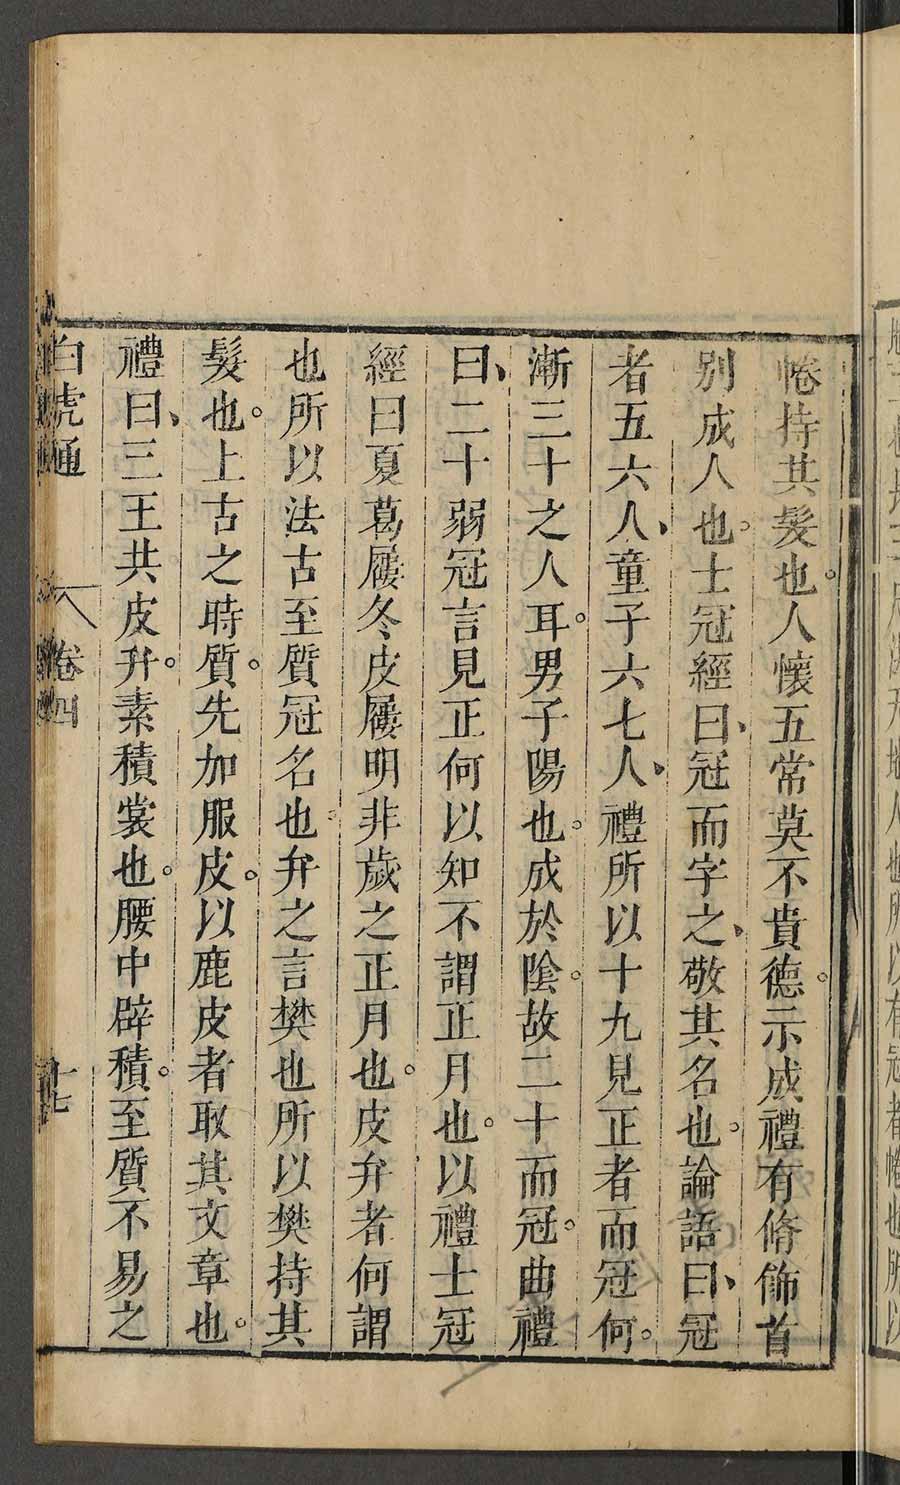 帣持其髮也。人懷五常莫不貴德。示成禮有脩飾首
別成人也。士冠經曰、冠而字之、敬其名也。論語曰、冠
者五六人、童子六七人、禮所以十九見正者而冠何。
漸三十之人耳。男子陽也。成於陰。故二十而冠。曲禮
曰、二十弱冠言見正何以知不謂正月也。以禮士冠
經曰夏葛屨冬皮屨明非歲之正月也。皮弁者何謂
也所以法古至質冠名也。弁之言樊也所以樊持其
髮也。上古之時質。先加服皮。以鹿皮者取其文章也。
禮曰、三王共皮弁。素積裳也。腰中辟積。至質不易之
白虎通
卷四
十七